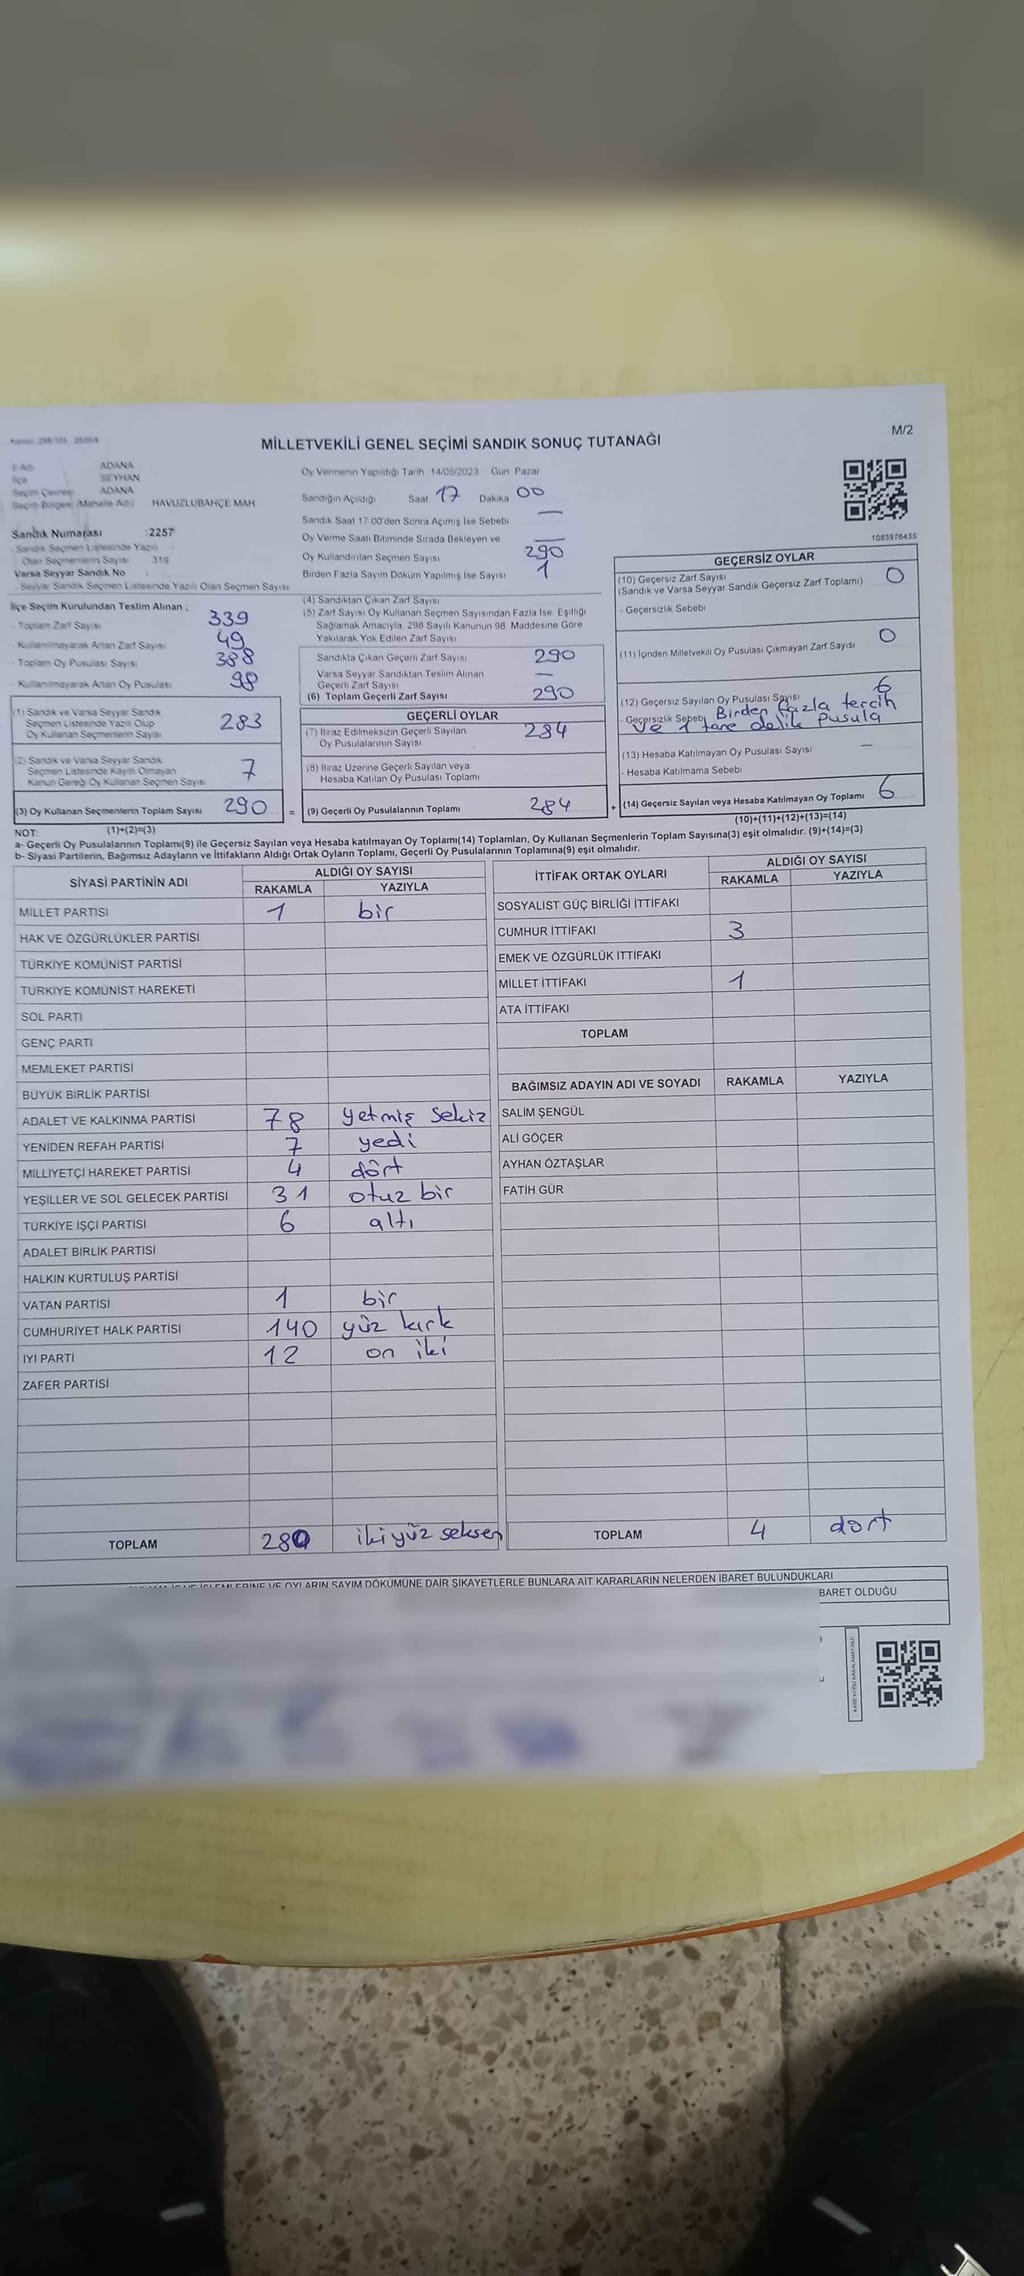 M/2
MİLLETVEKİLİ GENEL SEÇİMİ SANDIK SONUÇ TUTANAĞI
İl Adı ADANA
İlçe SEYHAN
Seçim Çevresi ADANA
Seçim Bölgesi (Mahalle Adı) HAVUZLUBAHÇE MAH
Sandık Numarası :2257
Sandık Seçmen Listesinde Yazılı
Olan Seçmenlerin Sayısı 319
Varsa Seyyar Sandık No
Seyyar Sandık Seçmen Listesinde Yazılı Olan Seçmen Sayısı
Oy Vermenin Yapıldığı Tarih 14/05/2023 Gün Pazar
Sandığın Açıldığı Saat 17 Dakika 00
Sandık Saat 17 00'den Sonra Açımış İse Sebebi —
Oy Verme Saati Bitiminde Sırada Bekleyen ve —
Oy Kullandırılan Seçmen Sayısı 290
Birden Fazla Sayım Döküm Yapılmış İse Sayısı 1
1083576435
İlçe Seçim Kurulundan Teslim Alınan ;
- Toplam Zarf Sayısı 339
- Kullanılmayarak Artan Zarf Sayısı 49
- Toplam Oy Pusulası Sayısı 388
- Kullanılmayarak Artan Oy Pusulası 98
(1) Sandık ve Varsa Seyyar Sandık
Seçmen Listesinde Yazılı Olup
Oy Kullanan Seçmenlerin Sayısı 283
(2) Sandık ve Varsa Seyyar Sandık
Seçmen Listesinde Kayıtlı Olmayan
Kanun Gereği Oy Kullanan Seçmen Sayısı 7
(3) Oy Kullanan Seçmenlerin Toplam Sayısı 290 =
(4) Sandıktan Çıkan Zarf Sayısı
(5) Zarf Sayısı Oy Kullanan Seçmen Sayısından Fazla İse, Eşitliği
Sağlamak Amacıyla, 298 Sayılı Kanunun 98. Maddesine Göre
Yakılarak Yok Edilen Zarf Sayısı
Sandıkta Çıkan Geçerli Zarf Sayısı 290
Varsa Seyyar Sandıktan Teslim Alınan
Geçerli Zarf Sayısı —
(6) Toplam Geçerli Zarf Sayısı 290
GEÇERLİ OYLAR
(7) İtiraz Edilmeksizin Geçerli Sayılan
Oy Pusulalarının Sayısı 284
(8) İtiraz Üzerine Geçerli Sayılan veya
Hesaba Katılan Oy Pusulası Toplamı
(9) Geçerli Oy Pusulalarının Toplamı 284 +
GEÇERSİZ OYLAR
(10) Geçersiz Zarf Sayısı 0
(Sandık ve Varsa Seyyar Sandık Geçersiz Zarf Toplamı)
- Geçersizlik Sebebi
(11) İçinden Milletvekili Oy Pusulası Çıkmayan Zarf Sayısı 0
(12) Geçersiz Sayılan Oy Pusulası Sayısı 6
- Geçersizlik Sebebi Birden fazla tercih
ve 1 tane delik pusula
(13) Hesaba Katılmayan Oy Pusulası Sayısı —
- Hesaba Katılmama Sebebi
(14) Geçersiz Sayılan veya Hesaba Katılmayan Oy Toplamı 6
(10)+(11)+(12)+(13)=(14)
NOT: (1)+(2)=(3)
a- Geçerli Oy Pusulalarının Toplamı(9) ile Geçersiz Sayılan veya Hesaba Katılmayan Oy Toplamı(14) Toplamları, Oy Kullanan Seçmenlerin Toplam Sayısına(3) eşit olmalıdır. (9)+(14)=(3)
b- Siyasi Partilerin, Bağımsız Adayların ve İttifakların Aldığı Ortak Oyların Toplamı, Geçerli Oy Pusulalarının Toplamına(9) eşit olmalıdır.
SİYASİ PARTİNİN ADI ALDIĞI OY SAYISI
RAKAMLA YAZIYLA
MİLLET PARTİSİ 1 bir
HAK VE ÖZGÜRLÜKLER PARTİSİ
TÜRKİYE KOMÜNİST PARTİSİ
TÜRKİYE KOMÜNİST HAREKETİ
SOL PARTİ
GENÇ PARTİ
MEMLEKET PARTİSİ
BÜYÜK BİRLİK PARTİSİ
ADALET VE KALKINMA PARTİSİ 78 yetmiş sekiz
YENİDEN REFAH PARTİSİ 7 yedi
MİLLİYETÇİ HAREKET PARTİSİ 4 dört
YEŞİLLER VE SOL GELECEK PARTİSİ 31 otuz bir
TÜRKİYE İŞÇİ PARTİSİ 6 altı
ADALET BİRLİK PARTİSİ
HALKIN KURTULUŞ PARTİSİ
VATAN PARTİSİ 1 bir
CUMHURİYET HALK PARTİSİ 140 yüz kırk
İYİ PARTİ 12 on iki
ZAFER PARTİSİ
TOPLAM 280 iki yüz seksen
İTTİFAK ORTAK OYLARI ALDIĞI OY SAYISI
RAKAMLA YAZIYLA
SOSYALİST GÜÇ BİRLİĞİ İTTİFAKI
CUMHUR İTTİFAKI 3
EMEK VE ÖZGÜRLÜK İTTİFAKI
MİLLET İTTİFAKI 1
ATA İTTİFAKI
TOPLAM
BAĞIMSIZ ADAYIN ADI VE SOYADI RAKAMLA YAZIYLA
SALİM ŞENGÜL
ALİ GÖÇER
AYHAN ÖZTAŞLAR
FATİH GÜR
TOPLAM 4 dört
OYLARIN SAYIM DÖKÜMÜNE DAİR ŞİKAYETLERLE BUNLARA AİT KARARLARIN NELERDEN İBARET BULUNDUKLARI
BARET OLDUĞU